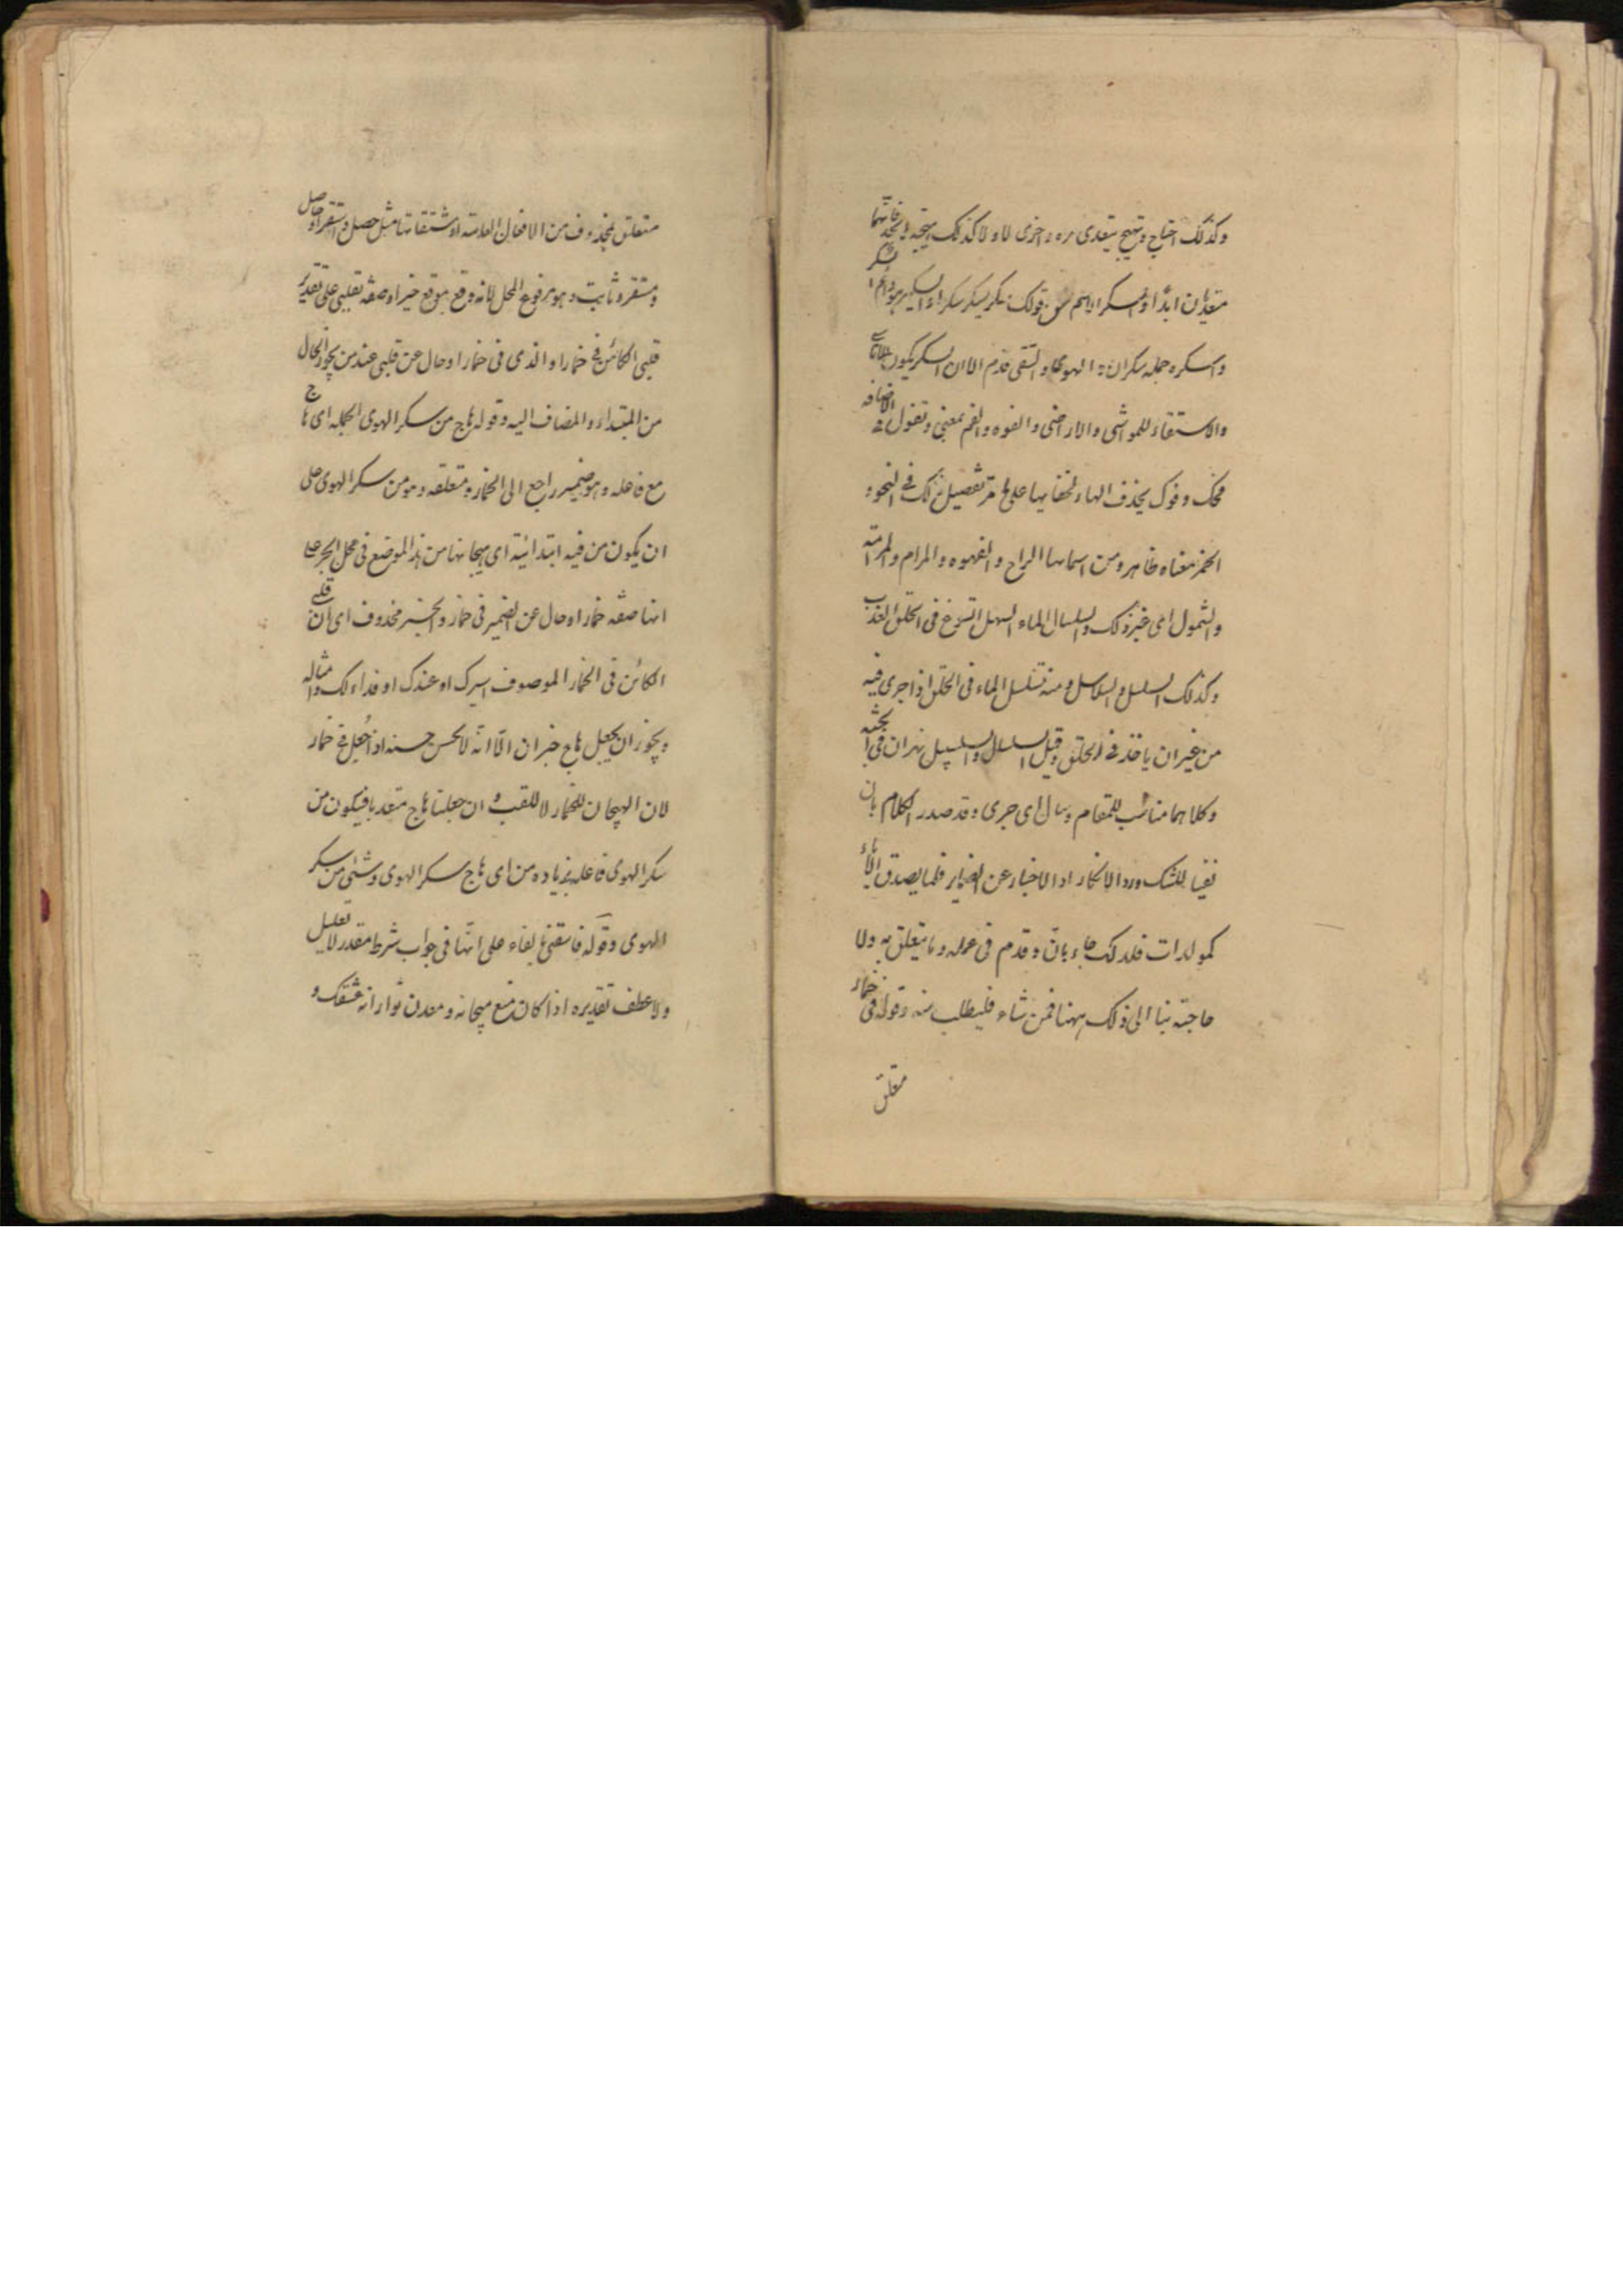 وكذلك اهتاج وتهيج يتعدى مره واخرى لا ولا كذلك هيجه فانهما
متعديان ابدا والسكر اسم من قولك سكر يسكر سكرا
واسكره جعله سكران الهوى والسقى قدم الا ان السكر يكون
والاستقاء للمواشى والاراضى والفوه والفم بمعنى وتقول الاضافه
فمك وفوك بحذف الهاء لخفائها على ما مر تفصيل ذلك فى النحو
الخمر معناه ظاهر ومن اسمائها الراح والقهوه والمدام والمدامة
والشمول الى غير ذلك والسلسال الماء السهل فى الحلق العذب
وكذلك السلسل والسلاسل ومنه تسلسل الماء فى الحلق اذا جرى فيه
من غير ان ياخذ فى الحلق وقيل السلسال والسلسبيل نهران فى الجنة
وكلاهما مناسب للمقام وسال اى جرى وقد صدر الكلام بان
نفيا للشك ورد الانكار اذ الاخبار عن الضماير قلما يصدق
فلذلك جاء بان وقدم فى عمله وما يتعلق به ولا
حاجة بنا الى ذلك ههنا فمن شاء فليطلب منه وقوله فى خمار
متعلق
متعلق بمحذوف من الافعال العامة او مشتقاتها مثل حصل واستقر او حاصل
ومستقر وثابت وهو مرفوع المحل لانه وقع موقع خبر او صفة لقلبى على تقدير
قلبى الكائن فى خمار او الذى فى خمار او حال عن قلبى عند من يجوز الحال
من المبتداء والمضاف اليه وقوله هاج من سكر الهوى الجملة اى هاج
مع فاعله وهو ضمير راجع الى الخمار ومتعلقه وهو من سكر الهوى على
ان يكون من فيه ابتدائية اى هيجانها من هذا الموضع فى محل الجر على
انها صفة خمار او حال عن الضمير فى خمار والخبر محذوف اى ان قلبى
الكائن فى الخمار الموصوف اسيرك او عندك او فداء لك وامثاله
ويجوز ان يجعل هاج خبر ان الا انه لا يحسن حسنه اذا جعل فى خمار
لان الهيجان للخمار لا للقلب و ان جعلنا هاج متعديا فيكون من
سكر الهوى فاعله بزياده من اى هاج سكر الهوى وشىء من سكر
الهوى وقوله فاسقنى بالفاء على انها فى جواب شرط مقدر لا تعليل
ولا عطف تقديره اذا كان منبع هيجانه ومعدن عشقك و